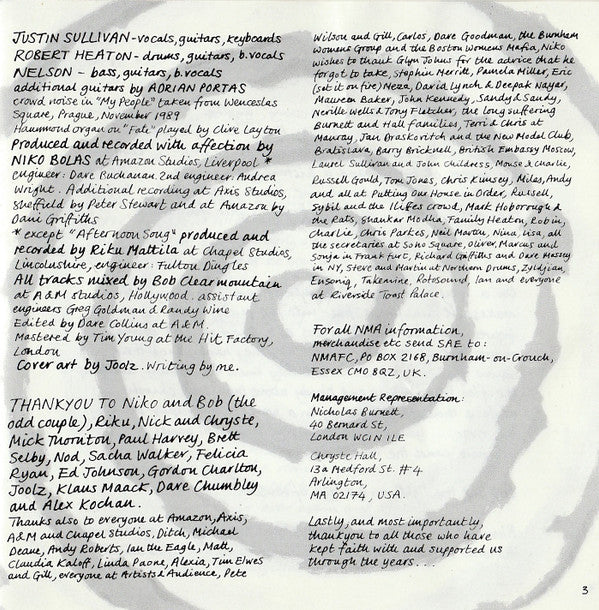 JUSTIN SULLIVAN - vocals, guitars, keyboards
ROBERT HEATON - drums, guitars, b.vocals
NELSON - bass, guitars, b.vocals
additional guitars by ADRIAN PORTAS
crowd noise in "My People" taken from Wenceslas
Square, Prague, November 1989
Hammond organ on "Fate" played by Clive Layton
Produced and recorded with affection by
NIKO BOLAS at Amazon Studios, Liverpool *
engineer: Dave Buchanan. 2nd engineer: Andrea
Wright. Additional recording at Axis Studios,
Sheffield by Peter Stewart and at Amazon by
Dani Griffiths
* except "Afternoon Song" produced and
recorded by Riku Mattila at Chapel Studios,
Lincolnshire, engineer: Fulton Dingles
All tracks mixed by Bob Clearmountain
at A&M studios, Hollywood. assistant
engineers Greg Goldman & Randy Wine
Edited by Dave Collins at A&M.
Mastered by Tim Young at the Hit Factory,
London
Cover art by Joolz. Writing by me.
THANKYOU TO Niko and Bob (the
odd couple), Riku, Nick and Chryste,
Mick Thornton, Paul Harvey, Brett
Selby, Nod, Sacha Walker, Felicia
Ryan, Ed Johnson, Gordon Charlton,
Joolz, Klaus Maack, Dave Chumbley
and Alex Kochan.
Thanks also to everyone at Amazon, Axis,
A&M and Chapel Studios, Ditch, Michael
Deane, Andy Roberts, Ian the Eagle, Matt,
Claudia Kaloff, Linda Paone, Alexia, Tim Elwes
and Gill, everyone at Artists & Audience, Pete
Wilson and Gill, Carlos, Dave Goodman, the Burnham
Womens Group and the Boston Womens Mafia, Niko
wishes to thank Glyn Johns for the advice that he
forgot to take, Stephin Merritt, Pamela Miller, Eric
(set it on fire) Meza, David Lynch & Deepak Nayar,
Maureen Baker, John Kennedy, Sandy & Sandy,
Neville Wells & Tony Fletcher, the long suffering
Burnett and Hall Families, Terri & Chris at
Mauray, Jan Braskovitch and the New Model Club,
Bratislava, Barry Bricknell, British Embassy Moscow,
Laurel Sullivan and John Childress, Mouse & Charlie,
Russell Gould, Tom Jones, Chris Kimsey, Miles, Andy
and all at Putting Our House in Order, Russell,
Sybil and the Iliffes crowd, Mark Hoborough &
the Rats, Shankar Modha, Family Heaton, Robin,
Charlie, Chris Parkes, Neil Martin, Nina, Lisa, all
the secretaries at Soho Square, Oliver Marcus and
Sonja in Frankfurt, Richard Griffiths and Dave Massey
in NY, Steve and Martin at Northern Drums, Zyldjian,
Ensoniq, Takemine, Rotosound, Ian and everyone
at Riverside Toast Palace.
For all NMA information,
merchandise etc send SAE to:
NMAFC, PO BOX 2168, Burnham-on-Crouch,
Essex CM0 8QZ, UK.
Management Representation:
Nicholas Burnett,
40 Bernard St,
London WC1N 1LE
Chryste Hall,
13a Medford St. #4
Arlington,
MA 02174, USA.
Lastly, and most importantly,
thankyou to all those who have
kept faith with and supported us
through the years . . . .
3